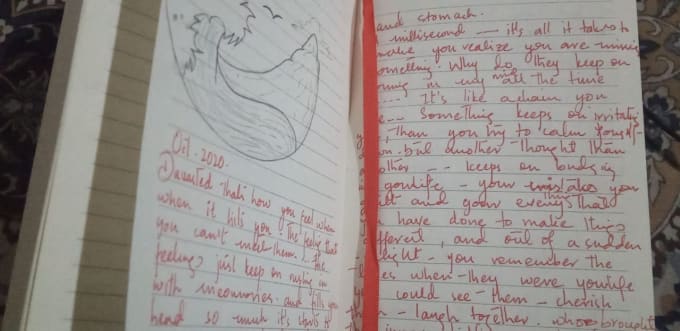 Oct - 2020.
Devasted that's how you feel when
when it hits you. The feeling that
you can't meet them ... the
feelings just keep on rushing in
with memories and fills your
head so much it's starts to
and stomach.
millisecond — it's all it takes to
make you realize you are missing
something. Why do they keep on
in my mind all the time
.... It's like a chain you
.... Something keeps on irritating
, Than you try to calm yourself
but another thought than
other -- keeps on
your life - your mistakes your
and your everything that
have done to make things
different, and out of a sudden
light - you remember the
when they were your life
could see them - cherish
- laugh together who brought